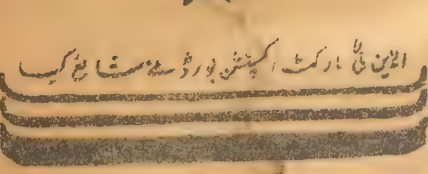 انڈین ٹی مارکٹ اکسپنشن بورڈ نے شایع کیا